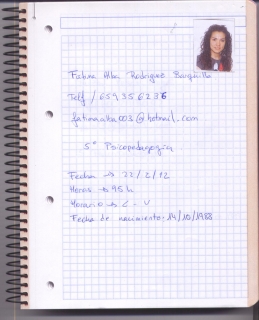 Fatima Alba Rodriguez
Telf / 659 356 236
fatimaalba003@hotmail.com
5º Psicopedagogía
Fecha → 22/2/12
Horas → 95 h
Horario → L - V
Fecha de nacimiento: 14/10/1988